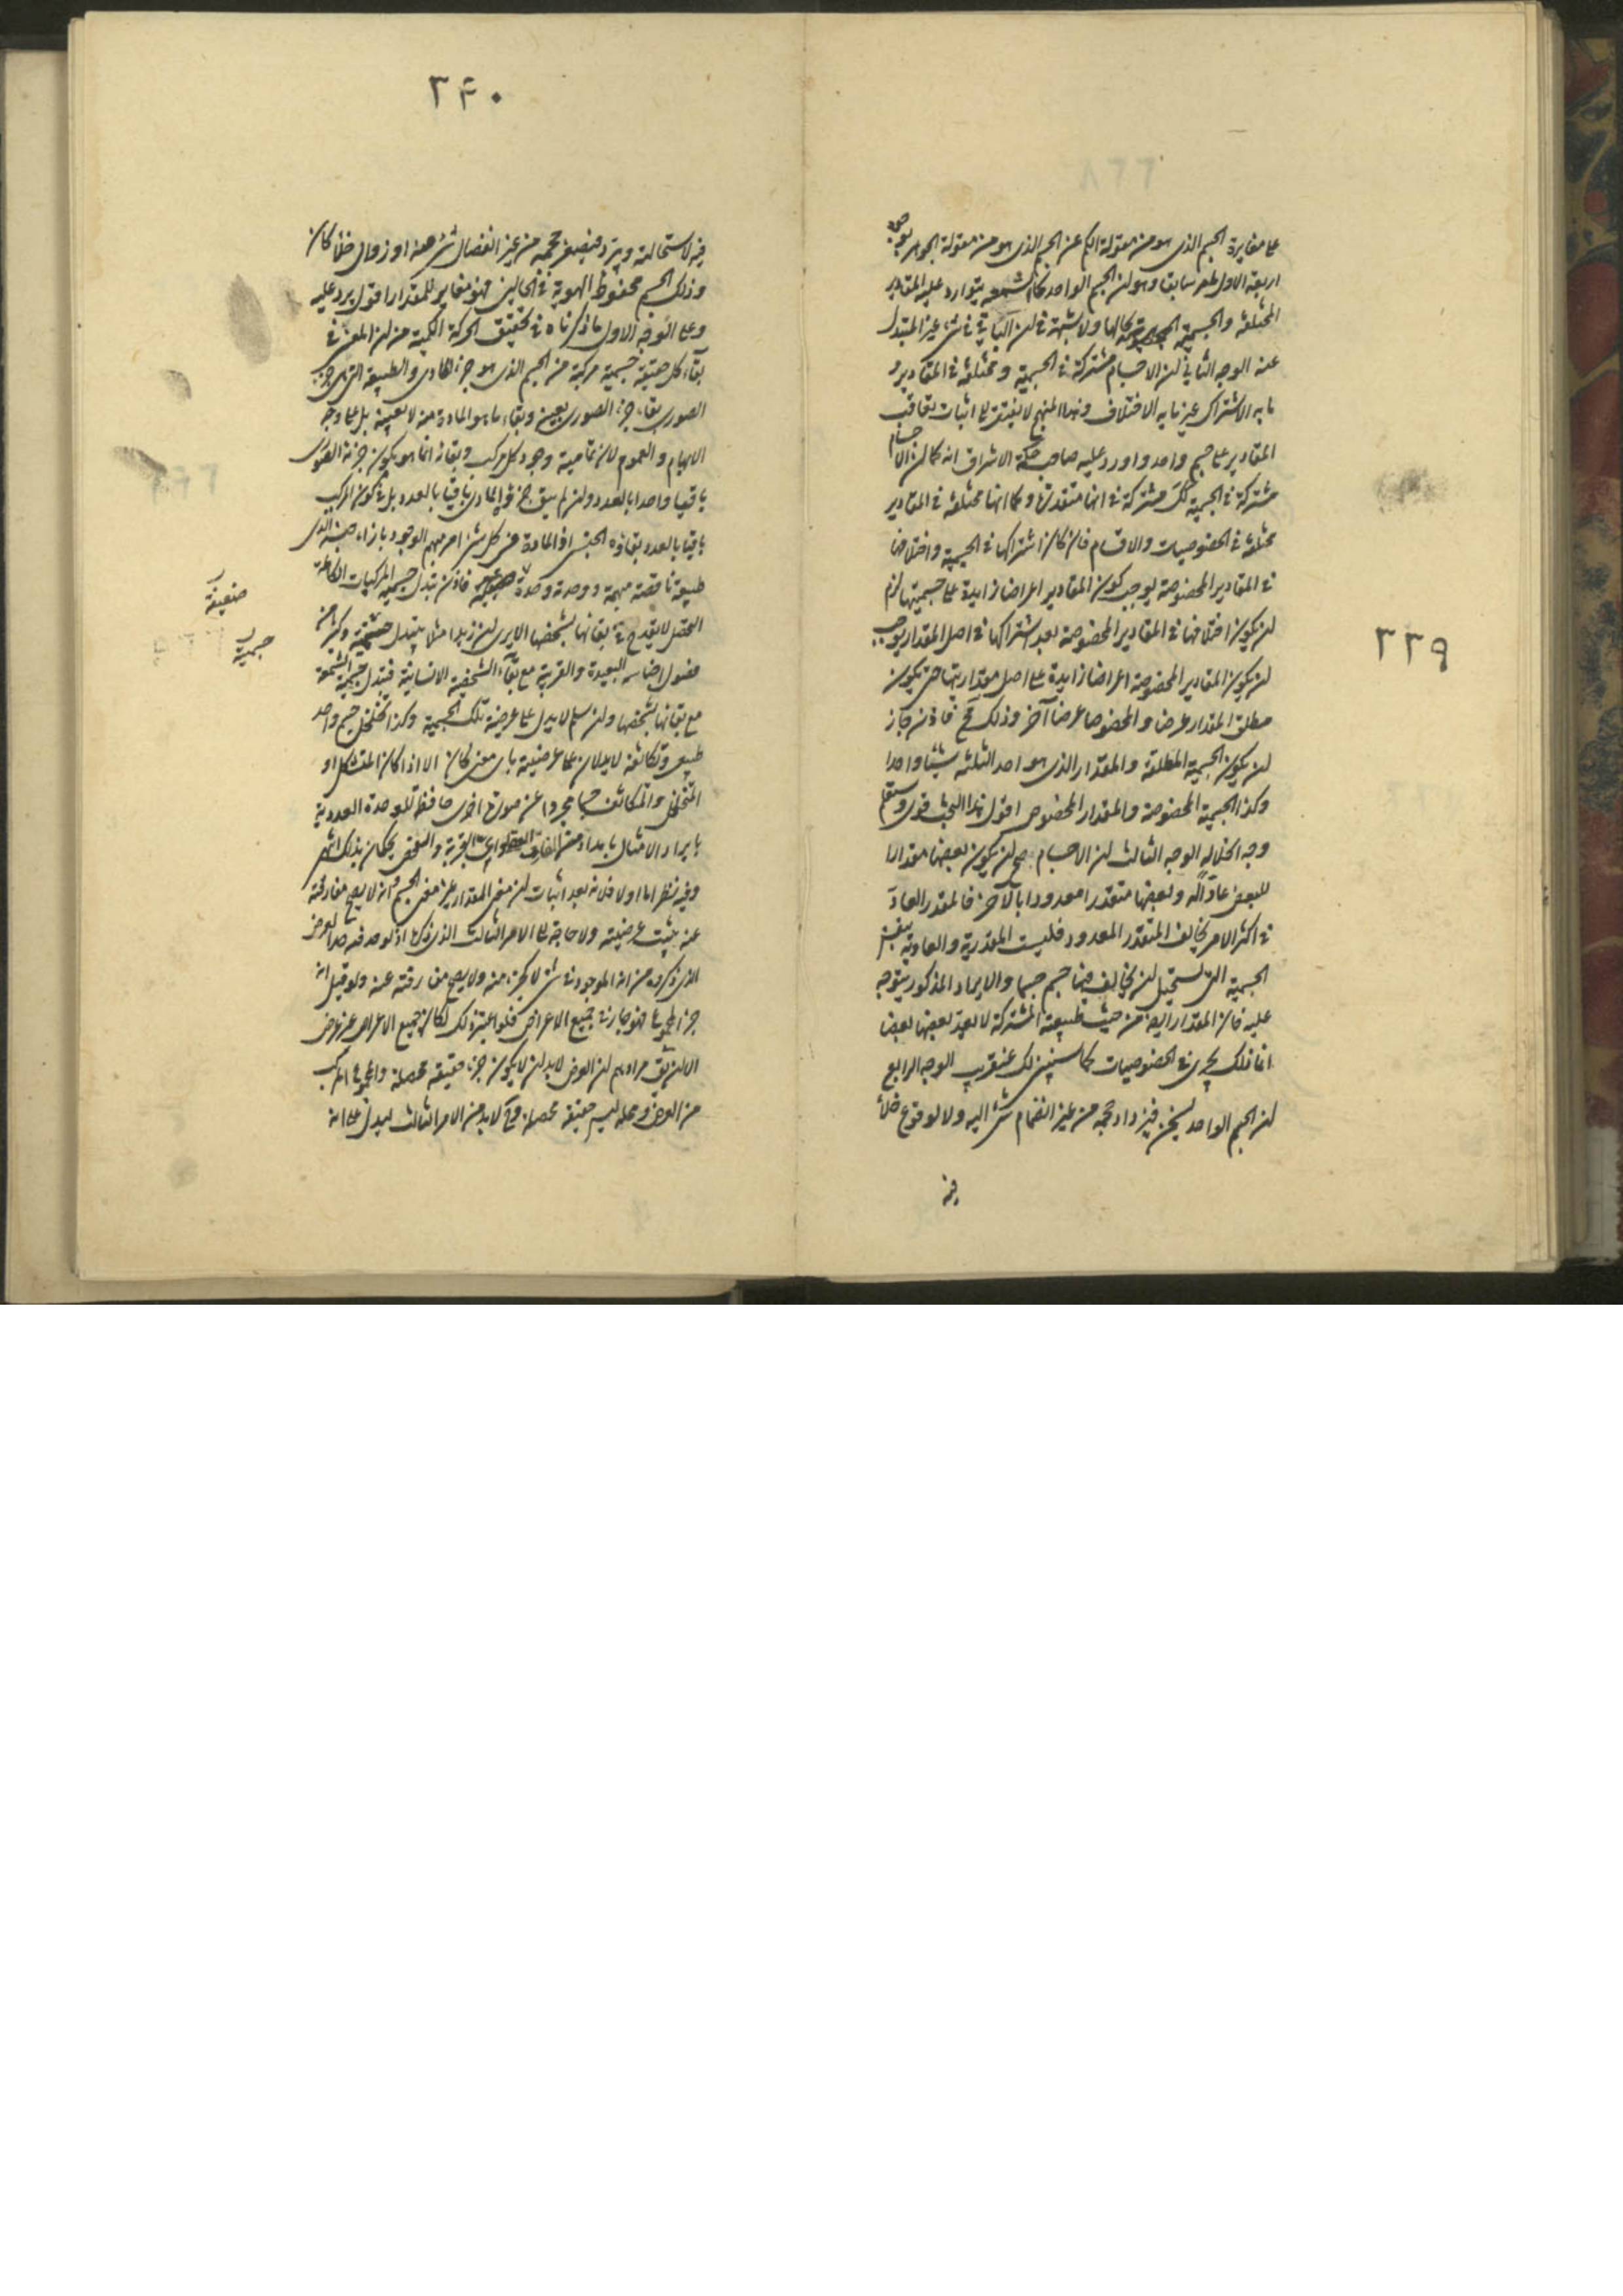 على مغايرة الجسم الذى هو من مقولة الكم عن الجسم الذى هو من مقولة الجوهر بوجوه
اربعة الاول ما مر سابقا وهو ان الجسم الواحد كالشمعة يتوارد عليه المقادير
المختلفة والجسمية بحالها ولا شبهة فى ان الباقى فى شىء غير المتبدل
عنه الوجه الثانى ان الاجسام مشتركة فى الجسمية ومختلفة فى المقادير و
ما به الاشتراك غير ما به الاختلاف وهذا المنهج لا يفتقر الى اثبات تعاقب
المقادير على جسم واحد واورد عليه صاحب حكمة الاشراق انه كما ان الاجسام
مشتركة فى الجسمية كك مشتركة فى انها متقدرة وكما انها مختلفة فى المقادير
مختلفة فى الخصوصيات والاقسام فان كان اشتراكها فى الجسمية واختلافها
فى المقادير المخصوصة يوجب كون المقادير اعراضا زايدة على جسميتها لزم
ان يكون اختلافها فى المقادير المخصوصة بعد اشتراكها فى اصل المقدار يوجب
ان يكون المقادير المخصوصة اعراضا زايدة على اصل مقداريتها حتى يكون
مطلق المقدار عرضا والمخصوصا عرضا آخر وذلك مح فاذن جاز
ان يكون الجسمية المطلقة والمقدار الذى هو احد الثلثه شيئا واحدا
وكذا الجسمية المخصوصة والمقدار المخصوص اقول هذا البحث قوى وستعلم
وجه انحلاله الوجه الثالث ان الاجسام صح ان يكون بعضها مقدارا
للبعض عادّا له وبعضها متقدرا معدودا بالآخر فالمقدر العادّ
فى اكثر الامر يخالف المتقدر المعدود فليست المقدرية والعادية بنفس
الجسمية التى يستحيل ان يخالف فيها جسم جسما والايراد المذكور يتوجه
عليه فان المقدار ايضا من حيث طبيعته المشتركة لا يعدّ بعضها بعضا
انما ذلك يجرى فى الخصوصيات كما سنبين لك عنقريب الوجه الرابع
ان الجسم الواحد يسخن فيزداد حجمه من غير انضمام شىء اليه ولا لوقوع خلأ
فيه
٢٣٩
٢۴٠
فيه لاستحالته ويبرد فيصغر حجمه من غير انفصال شىء منه او زوال خلأ كان
وذلك الجسم محفوظ الهوية فى الحالين فهو مغاير للمقدار اقول يرد عليه
وعلى الوجه الاول ما ذكرناه فى تحقيق الحركة الكمية من ان المعتبر فى
بقاء كل حقيقة جسمية مركبة من الجسم الذى هو جزئها المادى والطبيعة التى هى جزئها
الصورى بقاء جزئه الصورى بعينه وبقاء ما هو المادة منه لا بعينه بل على وجه
الابهام والعموم لان تمامية وجود كل مركب وبقائه انما هو بكون جزئه الصورى
باقيا واحدا بالعدد وان لم يبق جزؤه المادى باقيا بالعدد بل فى كون المركب
باقيا بالعدد بقاؤه الجنسى اذ المادة من كل شىء امر مبهم الوجود بازاء جنسه الذى
طبيعة ناقصة مبهمة ووحدته وحدة ضعيفة فاذن تبدل جسمية المركبات الكاملة
التحصل لا يقدح فى بقائها بشخصها الا يرى ان زيدا مثلا يتبدل جسميته وكثير من
فصول اجناسه البعيدة والقريبة مع بقاء الشخصية الانسانية فتبدل جسمية الشمعة
مع بقائها بشخصها وان سلم لا يدل على عرضية تلك الجسمية وكذا تخلخل جسم واحد
طبيعى وتكاثفه لا يدلان على عرضيته باى معنى كان الا اذا كان المتشكل او
المتخلخل والمتكاثف جسما مجردا عن صورة اخرى حافظة للوحدة العددية
وفيه نظر اما اولا فلانه بعد اثبات ان معنى المقدار غير معنى الجسم وانه لا يصح مفارقته
عنه يثبت عرضيته ولا حاجة الى الامر الثالث الذى ذكره اذ لوحد فيه حد العرض
الذى ذكروه من انه الموجود فى شىء لا كجزء منه ولا يصح مفارقته عنه ولو قيل انه
جزء المجموع فهو جار فى جميع الاعراض فلو اعتبر ذلك لكان جميع الاعراض غير عرض
الا ان يقال مرادهم ان العرض لابد ان لا يكون جزء حقيقة محصلة والمجموع المركب
من العرض ومحله ليس حقيقة محصلة وح لابد من الامر الثالث ليدل على انه
ضعيفة
جسمية